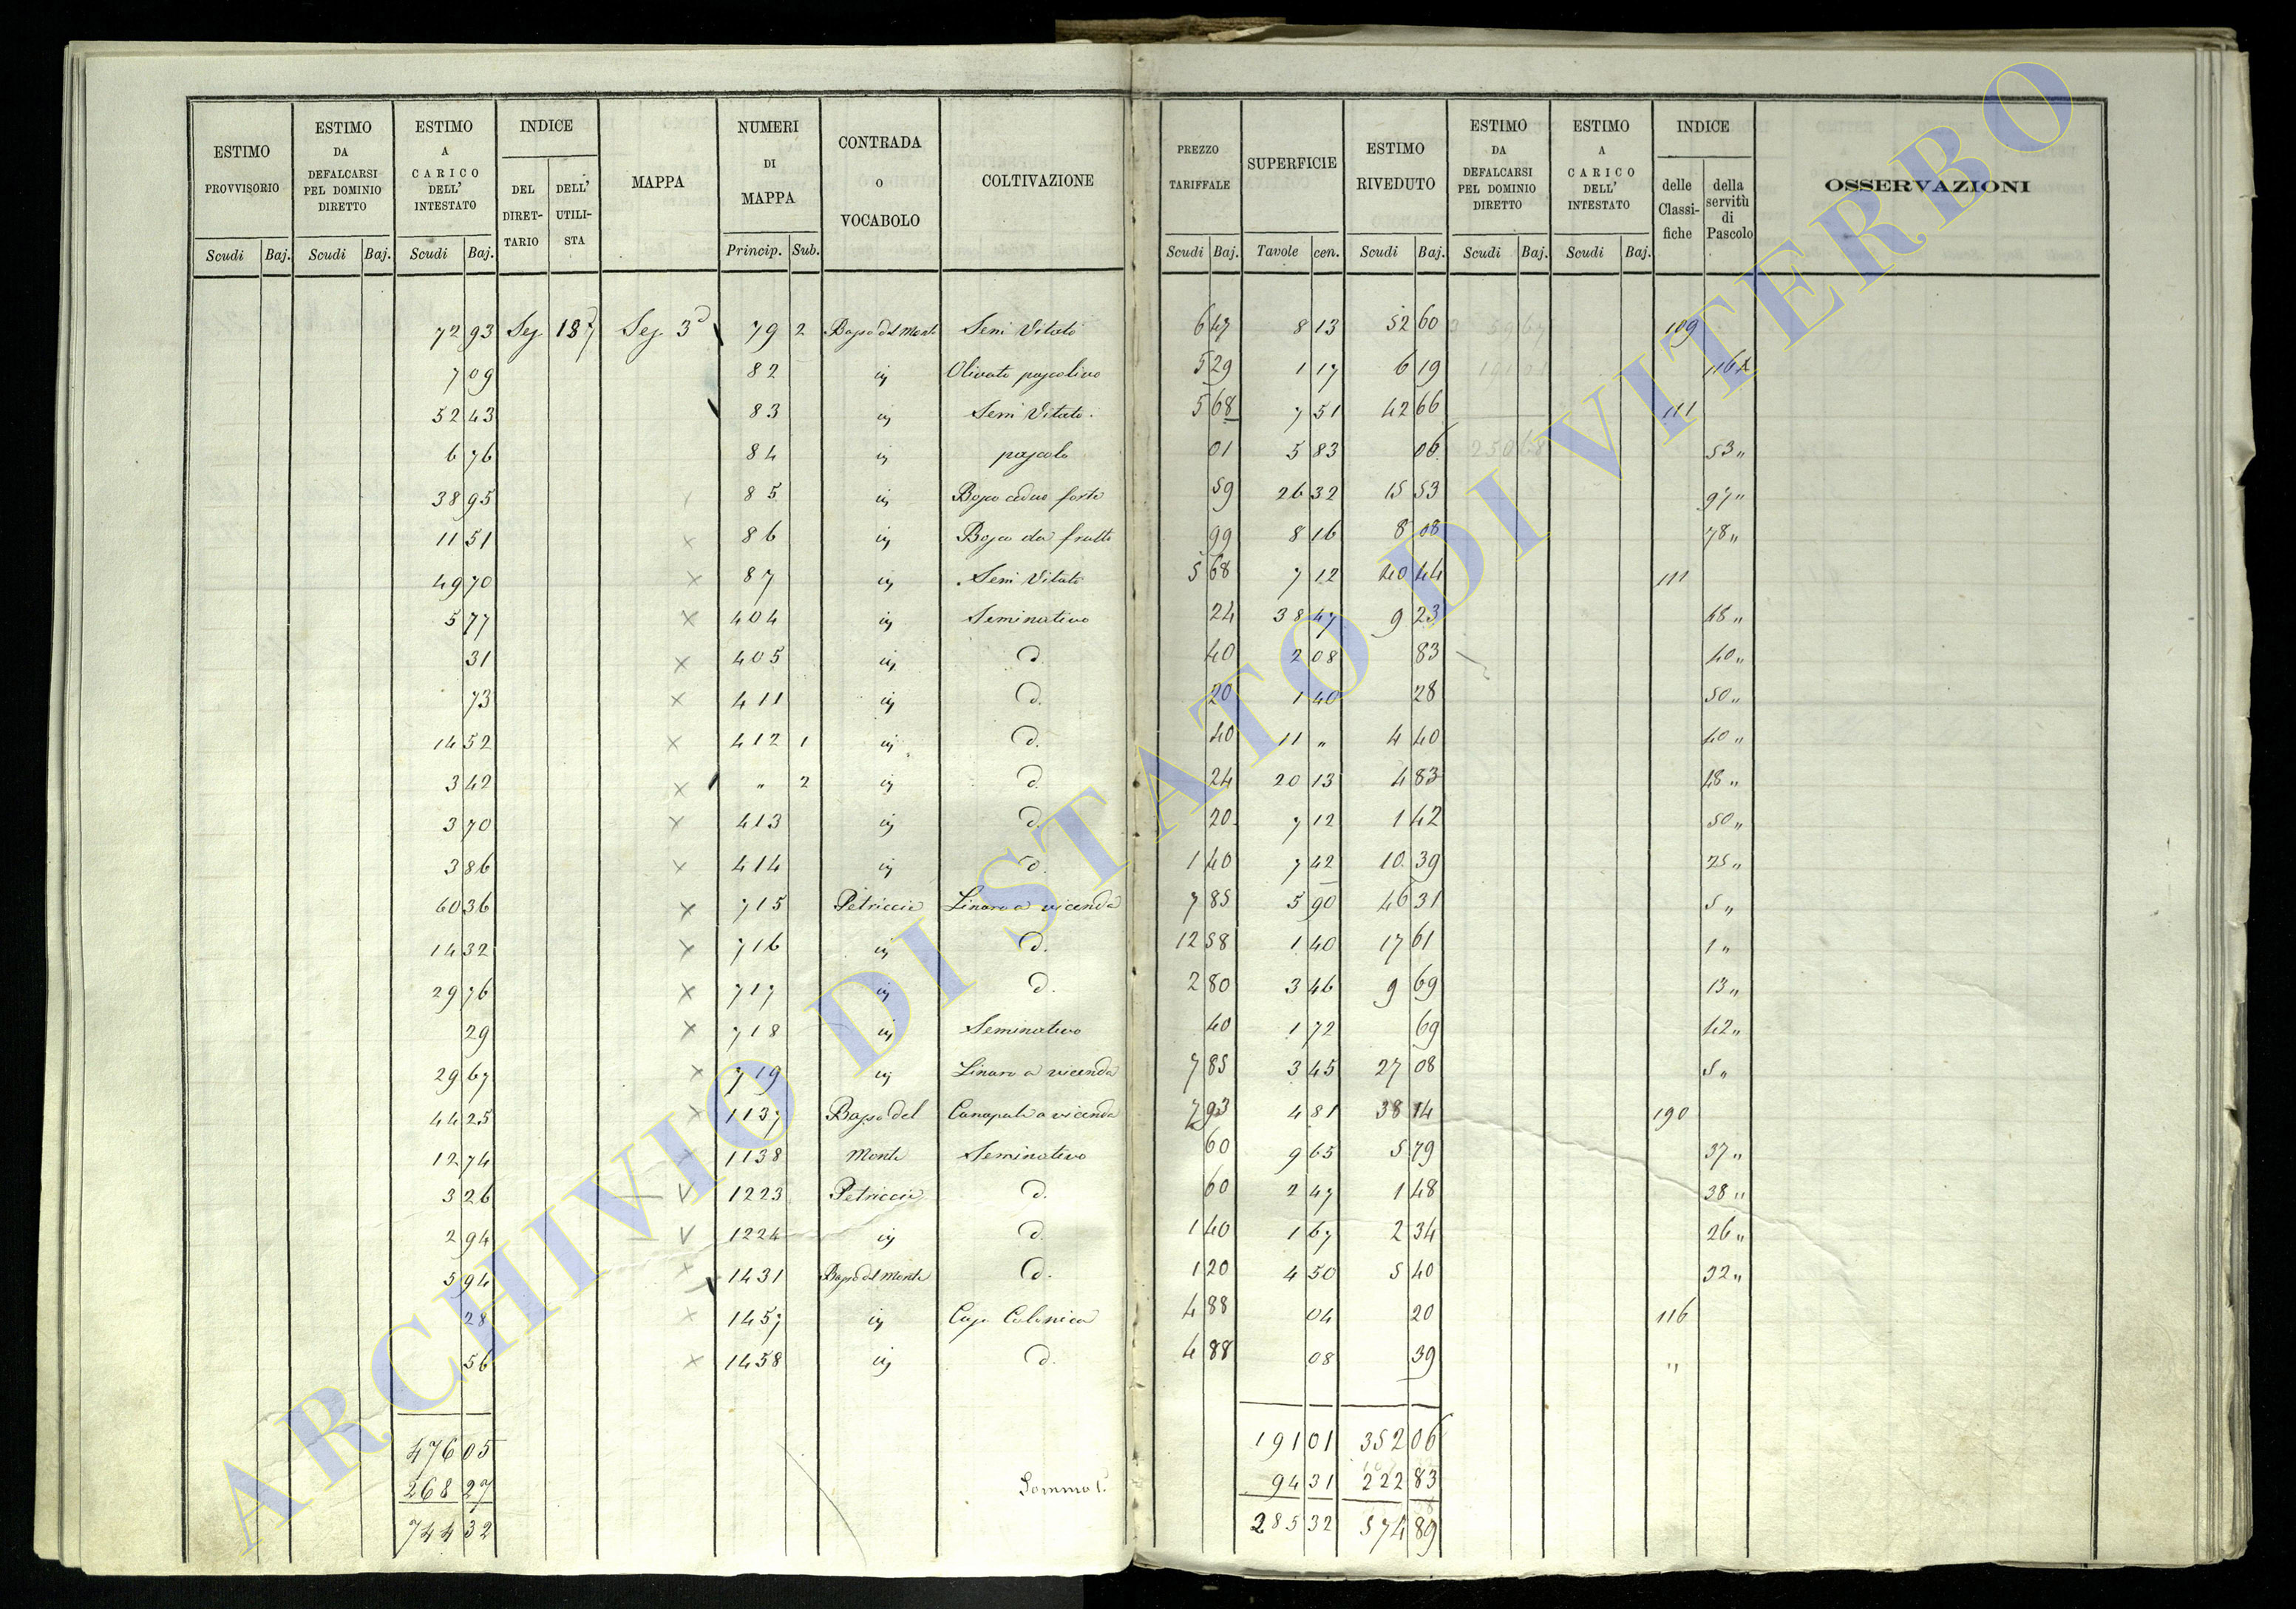 ESTIMO PROVVISORIO | ESTIMO DA DEFALCARSI PEL DOMINIO DIRETTO | ESTIMO A CARICO DELL' INTESTATO | INDICE DEL DIRETTARIO | DELL' UTILISTA | MAPPA | NUMERI DI MAPPA | CONTRADA O VOCABOLO | COLTIVAZIONE | PREZZO TARIFFALE | SUPERFICIE | ESTIMO RIVEDUTO | ESTIMO DA DEFALCARSI PEL DOMINIO DIRETTO | ESTIMO A CARICO DELL' INTESTATO | INDICE delle Classifiche | della servitù di Pascolo | OSSERVAZIONI
Scudi Baj. | Scudi Baj. | Scudi Baj. | Princip. Sub. | Scudi Baj. | Tavole cen. | Scudi Baj. | Scudi Baj. | Scudi Baj.
72 93 Seg 187 Seg 3a 79 2 Basso del Monte Semi Vitato 6 47 8 13 52 60 109
7 09 82 in Olivato pascolivo 5 29 1 17 6 19
52 43 83 in Semi Vitato 5 68 7 51 42 66 111
6 76 84 in pascolo 01 5 83 06 53 "
38 95 85 in Bosco ceduo forte 59 26 32 15 53 97 "
11 51 86 in Bosco da frutto 99 8 16 8 08 78 "
49 70 87 in Semi Vitato 5 68 7 12 40 44 111
5 77 404 in Seminativo 24 38 47 9 23 48 "
31 405 in d. 40 2 08 83 40 "
73 411 in d. 20 1 40 28 50 "
14 52 412 1 in d. 40 11 " 4 40 40 "
3 42 " 2 in d. 24 20 13 4 83 48 "
3 70 413 in d. 20 7 12 1 42 50 "
3 86 414 in d. 1 40 7 42 10 39 25 "
60 36 715 Petriccia Linaro a vicenda 7 85 5 90 46 31 5 "
14 32 716 in d. 12 58 1 40 17 61 1 "
29 76 717 in d. 2 80 3 46 9 69 13 "
29 718 in Seminativo 40 1 72 69 42 "
29 67 719 in Linaro a vicenda 7 85 3 45 27 08 5 "
44 25 1137 Basso del Canapule a vicenda 7 93 4 81 38 14 190
12 74 1138 Monte Seminativo 60 9 65 5 79 37 "
3 26 1223 Petriccia d. 60 2 47 1 48 38 "
2 94 1224 in d. 1 40 1 67 2 34 26 "
5 94 1431 Basso del Monte d. 1 20 4 50 5 40 32 "
28 1457 in Casa Colonica 4 88 04 20 116
56 1458 in d. 4 88 08 39 "
476 05 191 01 352 06
268 27 Somma 94 31 222 83
744 32 285 32 574 89
ARCHIVIO DI STATO DI VITERBO